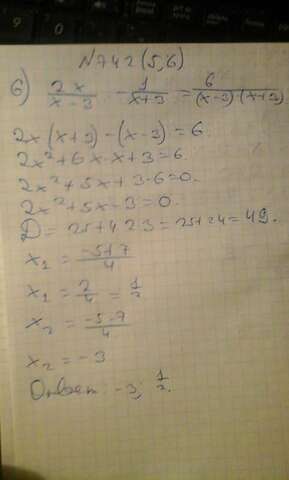 N742(5,6)
6) 2x/(x-3) - 1/(x+3) = 6/((x-3)(x+3))
2x(x+3)-(x-3)=6.
2x²+6x-x+3=6.
2x²+5x+3-6=0.
2x²+5x-3=0.
D=25+4·2·3=25+24=49.
x₁ = (-5+7)/4
x₁ = 2/4 = 1/2
x₂ = (-5-7)/4
x₂ = -3
Ответ: -3; 1/2.